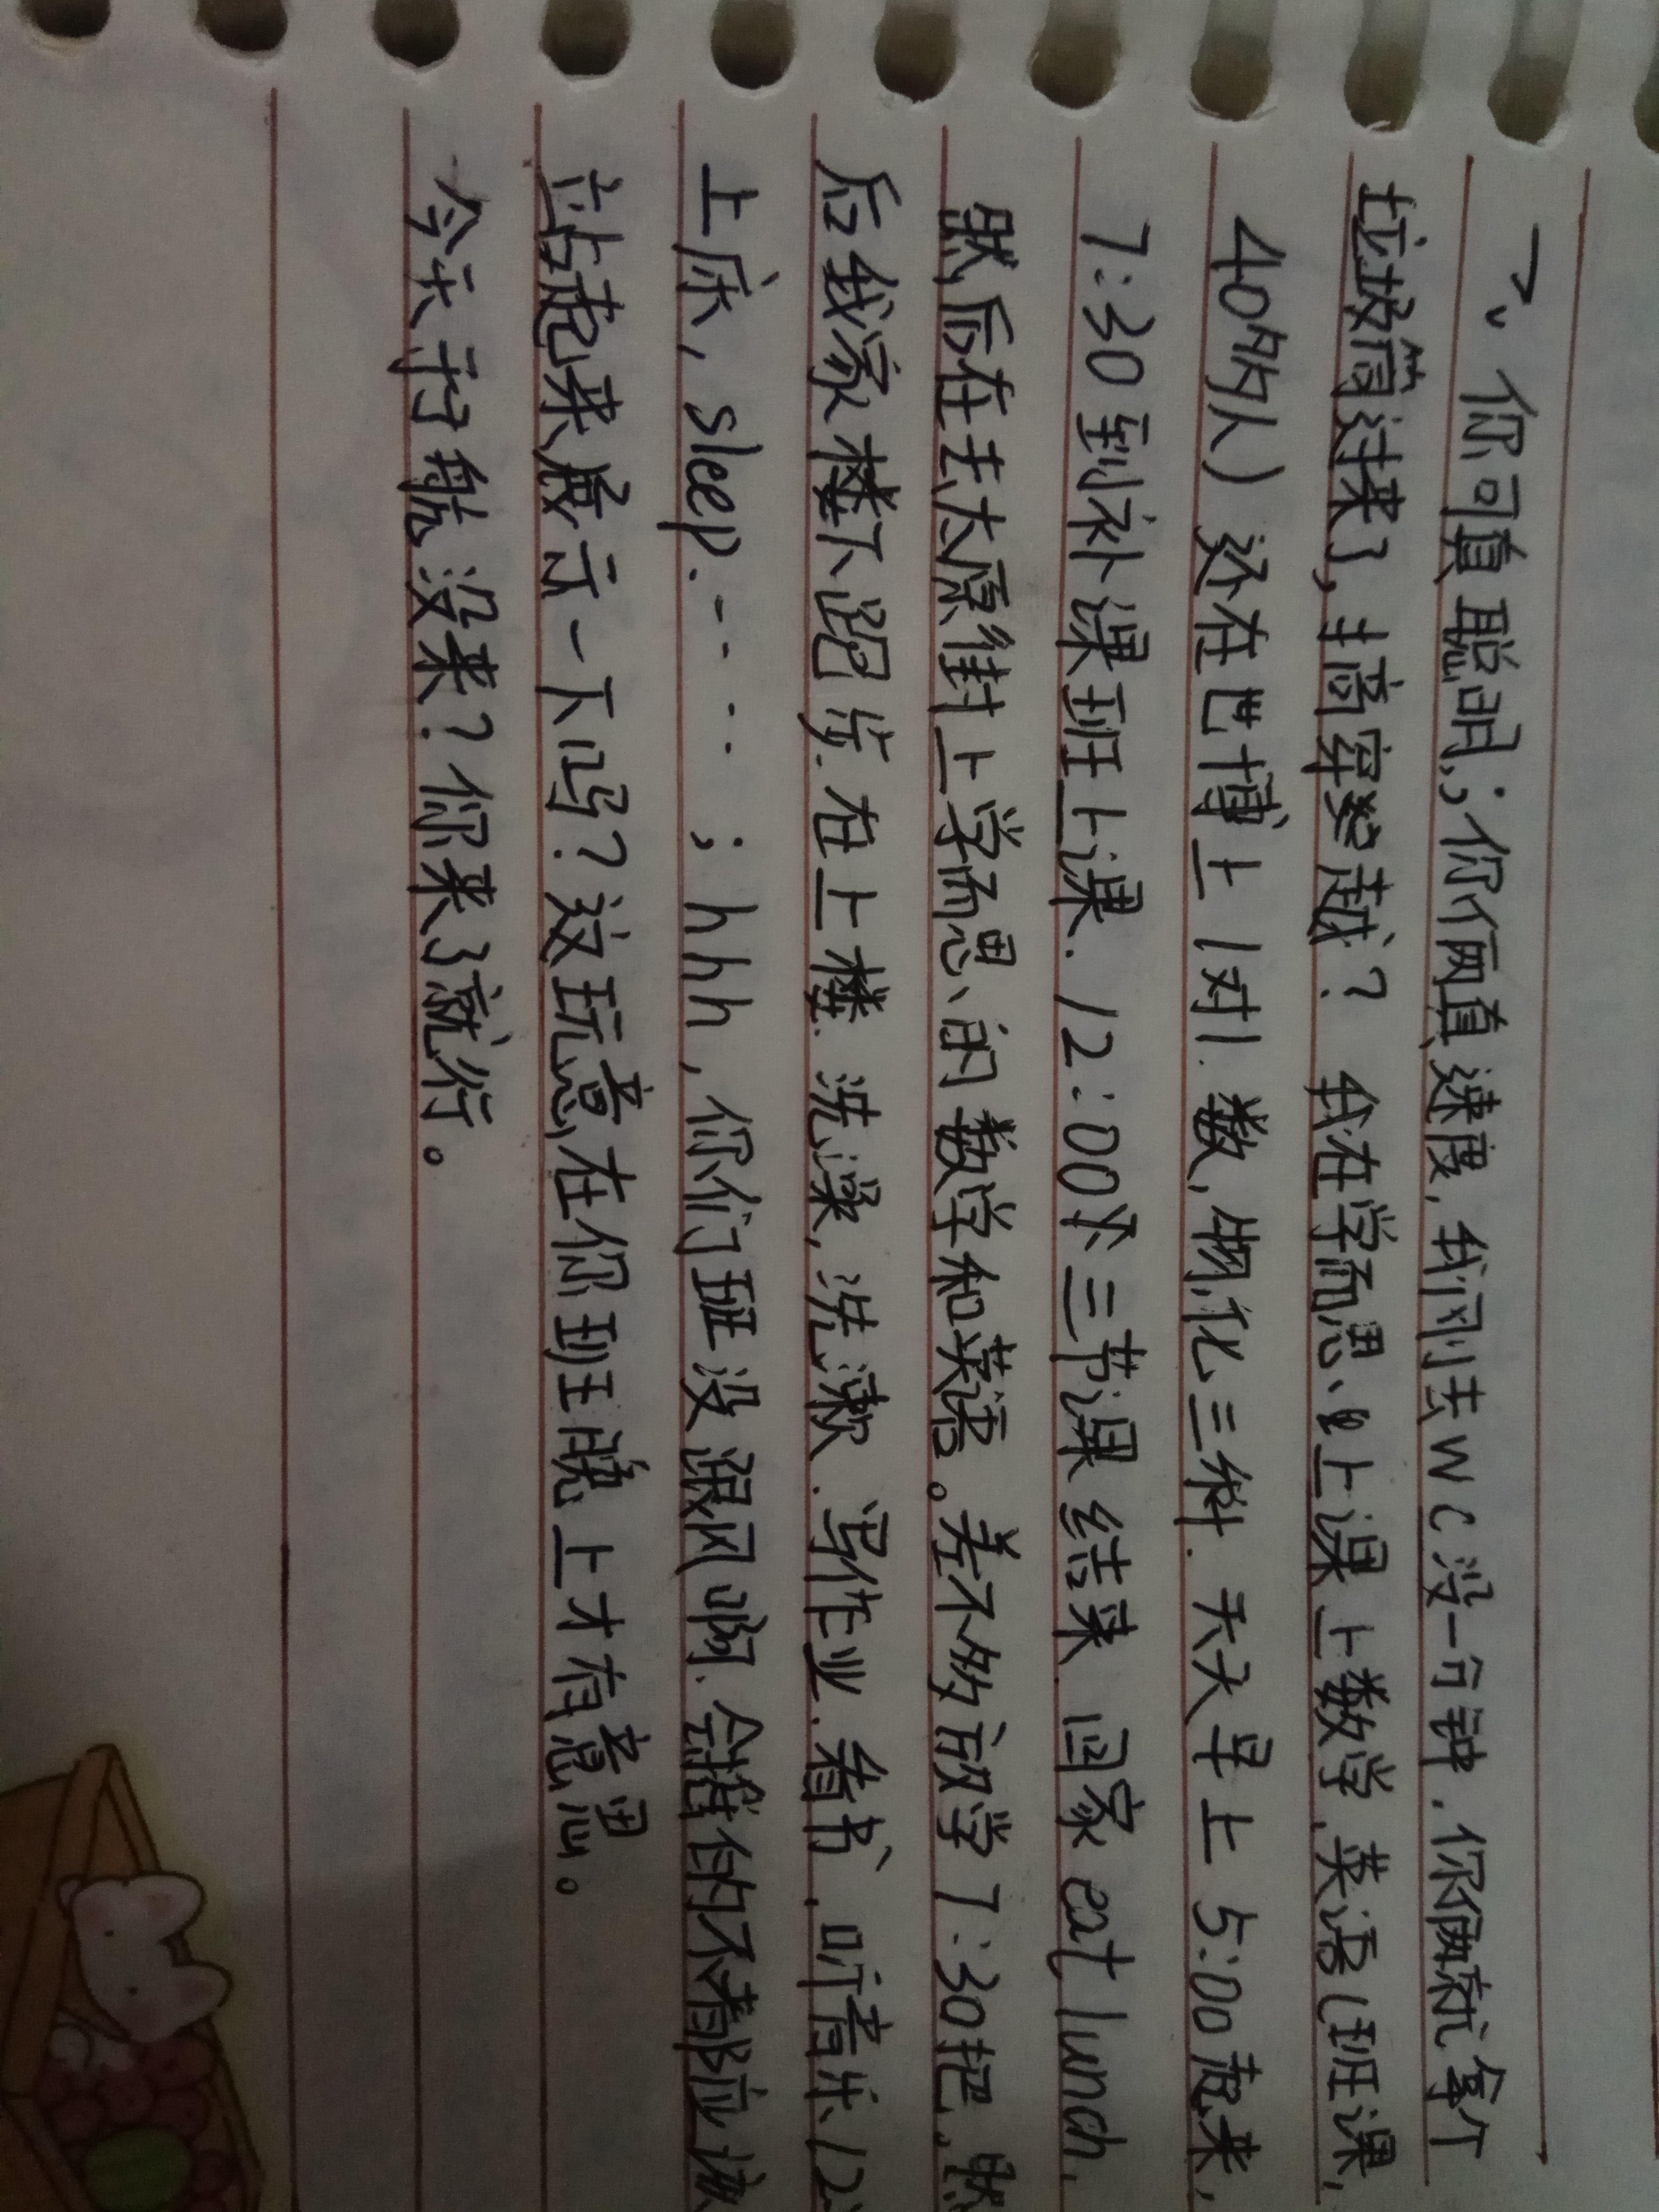 一、你可真聪明；你俩真速度，我刚去WC没一分钟．你俩就拿个
垃圾筒过来了，搞穿越？ 我在学而思、上课上数学．英语（班课，
40多人）还在世博上1对1．数，物，化三科．天天早上5:00起来，
7:30到补课班上课．12:00 三节课结束．回家eat lunch，
然后在去太原街上学而思、的数学和英语。差不多放学7:30把，然
后我家楼下跑步．在上楼．洗澡，洗漱．写作业．看书．听音乐12:
上床，sleep．……；hhh，你们班没跟风啊．会错的不都应该
站起来展示一下吗？这玩意，在你班王晓上才有意思。
今天于航没来？你来了就行。